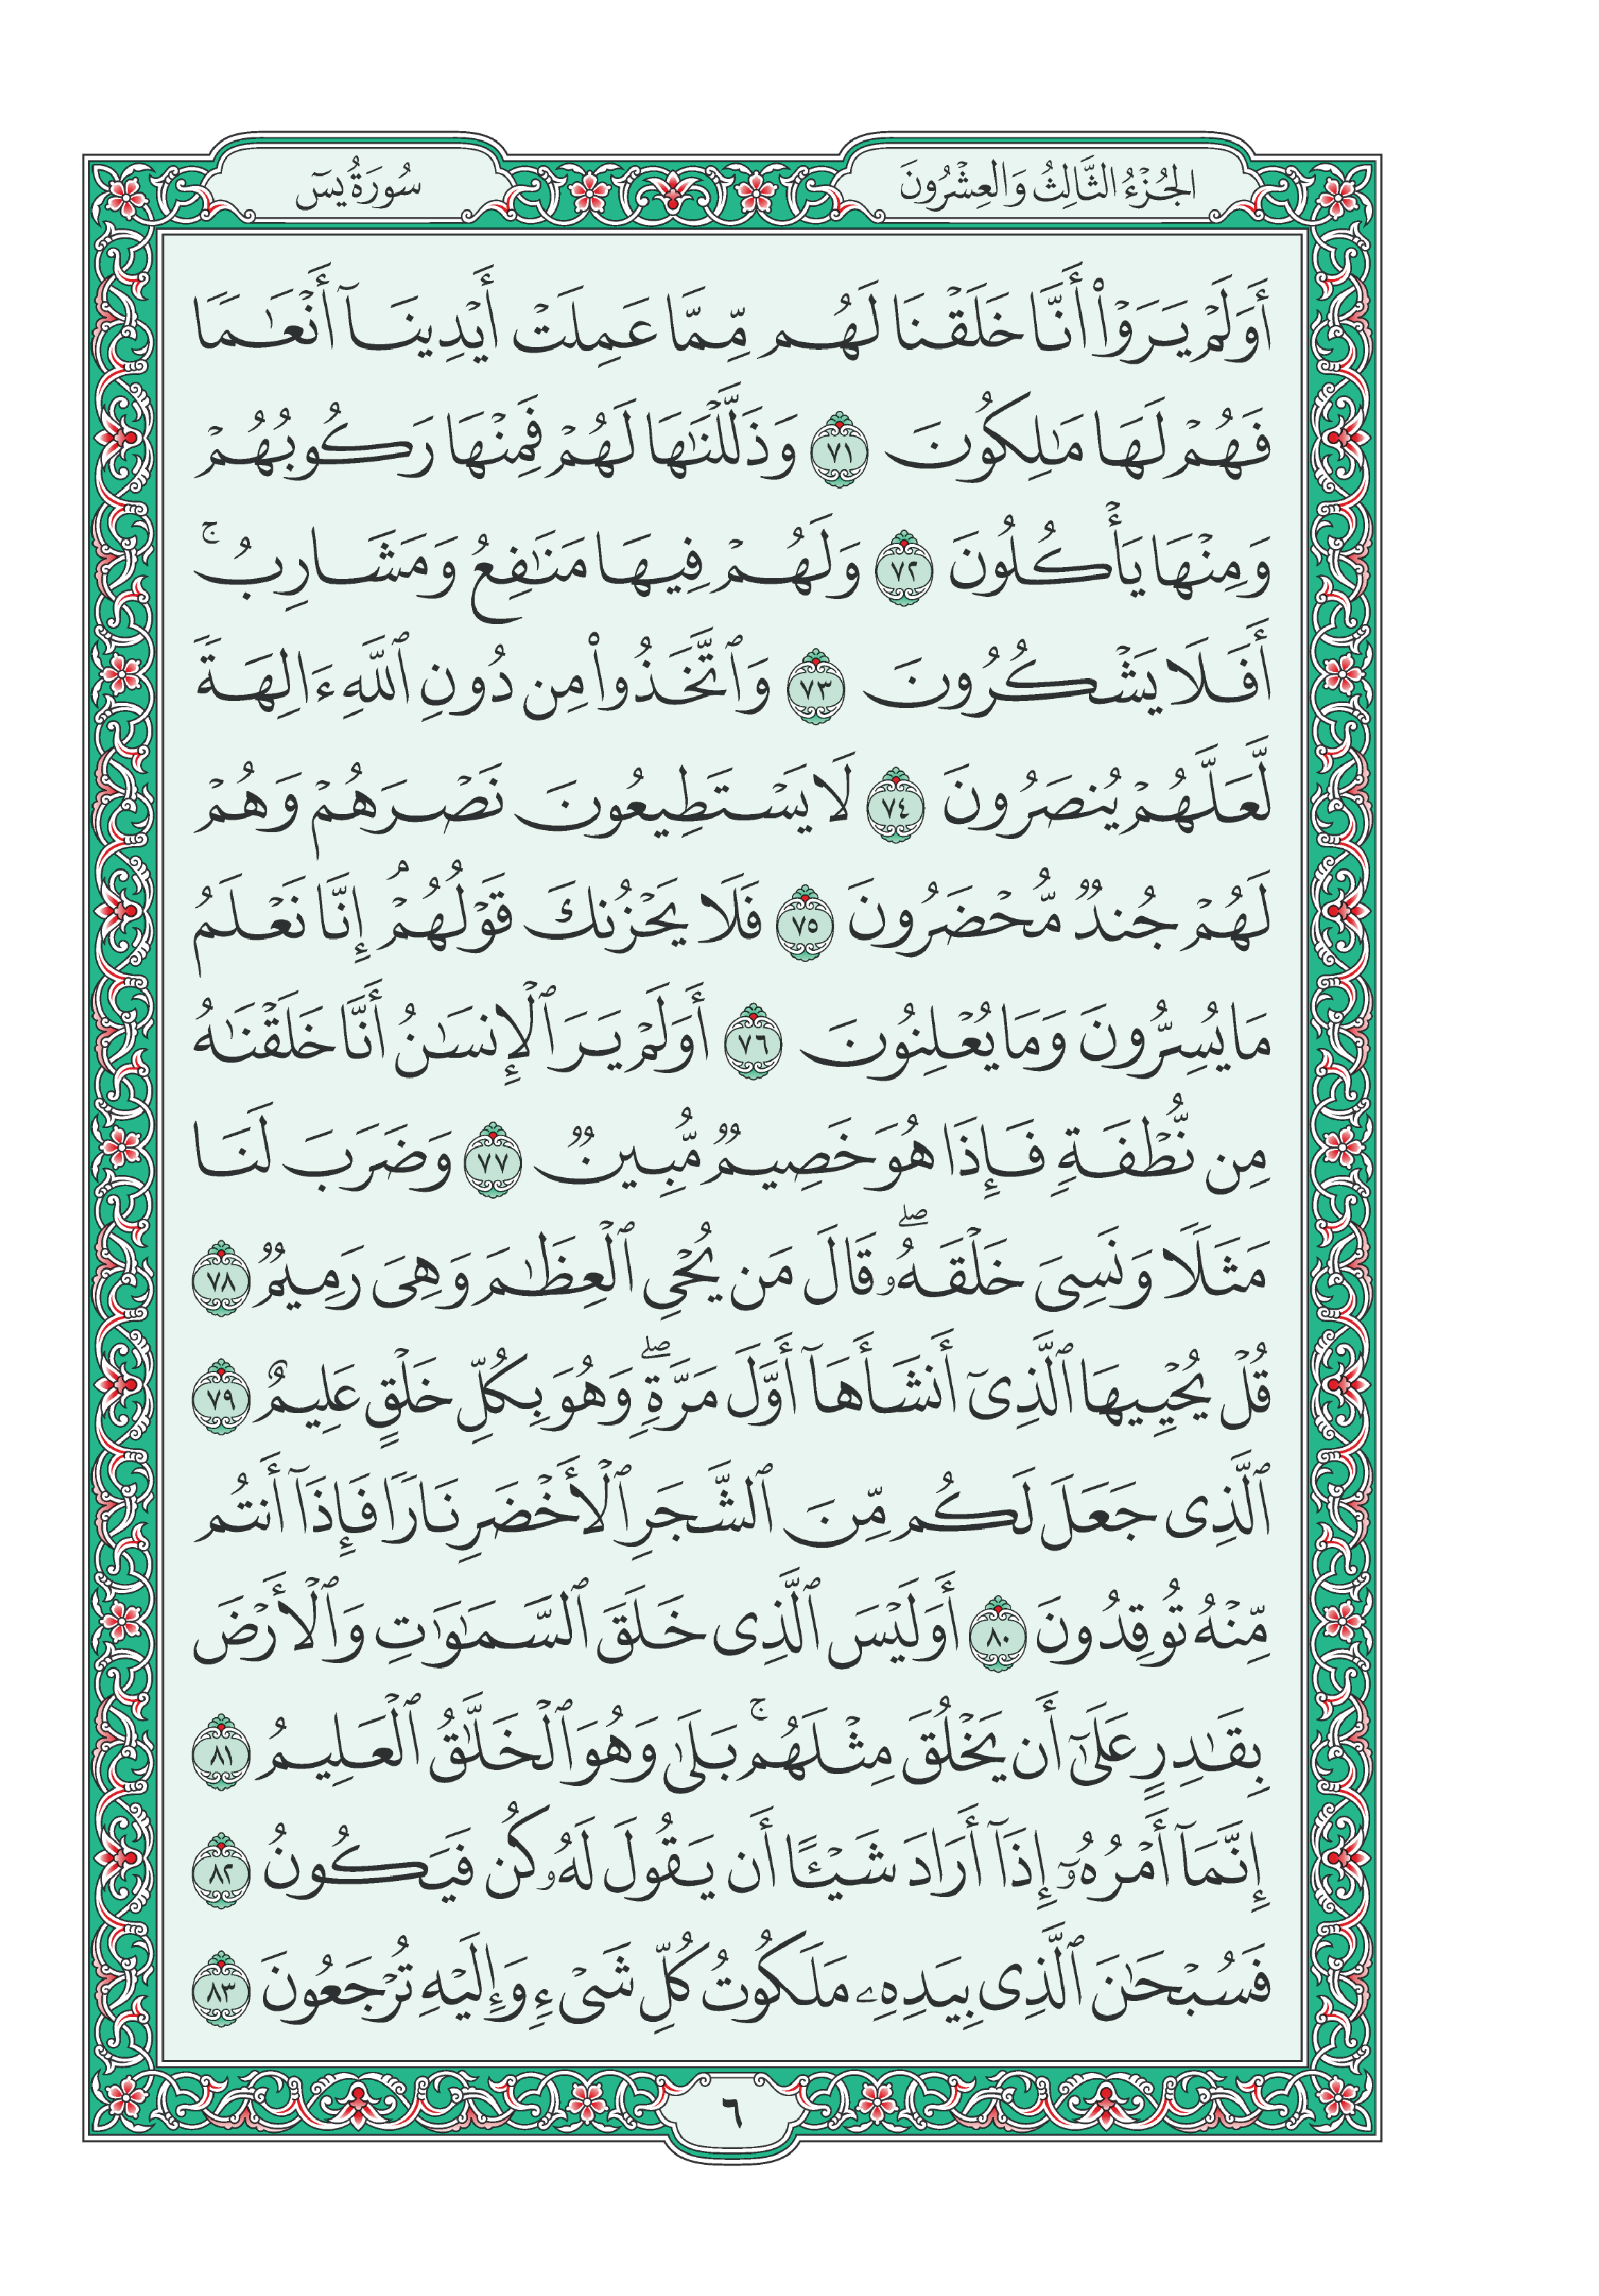 الجُزْءُ الثَّالِثُ وَالعِشْرُونَ
سُورَةُ يسٓ
أَوَلَمْ يَرَوْا۟ أَنَّا خَلَقْنَا لَهُم مِّمَّا عَمِلَتْ أَيْدِينَآ أَنْعَـٰمًا
فَهُمْ لَهَا مَـٰلِكُونَ ٧١ وَذَلَّلْنَـٰهَا لَهُمْ فَمِنْهَا رَكُوبُهُمْ
وَمِنْهَا يَأْكُلُونَ ٧٢ وَلَهُمْ فِيهَا مَنَـٰفِعُ وَمَشَارِبُ ۚ
أَفَلَا يَشْكُرُونَ ٧٣ وَٱتَّخَذُوا۟ مِن دُونِ ٱللَّهِ ءَالِهَةً
لَّعَلَّهُمْ يُنصَرُونَ ٧٤ لَا يَسْتَطِيعُونَ نَصْرَهُمْ وَهُمْ
لَهُمْ جُندٌ مُّحْضَرُونَ ٧٥ فَلَا يَحْزُنكَ قَوْلُهُمْ ۘ إِنَّا نَعْلَمُ
مَا يُسِرُّونَ وَمَا يُعْلِنُونَ ٧٦ أَوَلَمْ يَرَ ٱلْإِنسَـٰنُ أَنَّا خَلَقْنَـٰهُ
مِن نُّطْفَةٍ فَإِذَا هُوَ خَصِيمٌ مُّبِينٌ ٧٧ وَضَرَبَ لَنَا
مَثَلًا وَنَسِىَ خَلْقَهُۥ ۖ قَالَ مَن يُحْىِ ٱلْعِظَـٰمَ وَهِىَ رَمِيمٌ ٧٨
قُلْ يُحْيِيهَا ٱلَّذِىٓ أَنشَأَهَآ أَوَّلَ مَرَّةٍ ۖ وَهُوَ بِكُلِّ خَلْقٍ عَلِيمٌ ٧٩
ٱلَّذِى جَعَلَ لَكُم مِّنَ ٱلشَّجَرِ ٱلْأَخْضَرِ نَارًا فَإِذَآ أَنتُم
مِّنْهُ تُوقِدُونَ ٨٠ أَوَلَيْسَ ٱلَّذِى خَلَقَ ٱلسَّمَـٰوَٰتِ وَٱلْأَرْضَ
بِقَـٰدِرٍ عَلَىٰٓ أَن يَخْلُقَ مِثْلَهُم ۚ بَلَىٰ وَهُوَ ٱلْخَلَّـٰقُ ٱلْعَلِيمُ ٨١
إِنَّمَآ أَمْرُهُۥٓ إِذَآ أَرَادَ شَيْـًٔا أَن يَقُولَ لَهُۥ كُن فَيَكُونُ ٨٢
فَسُبْحَـٰنَ ٱلَّذِى بِيَدِهِۦ مَلَكُوتُ كُلِّ شَىْءٍ وَإِلَيْهِ تُرْجَعُونَ ٨٣
٦